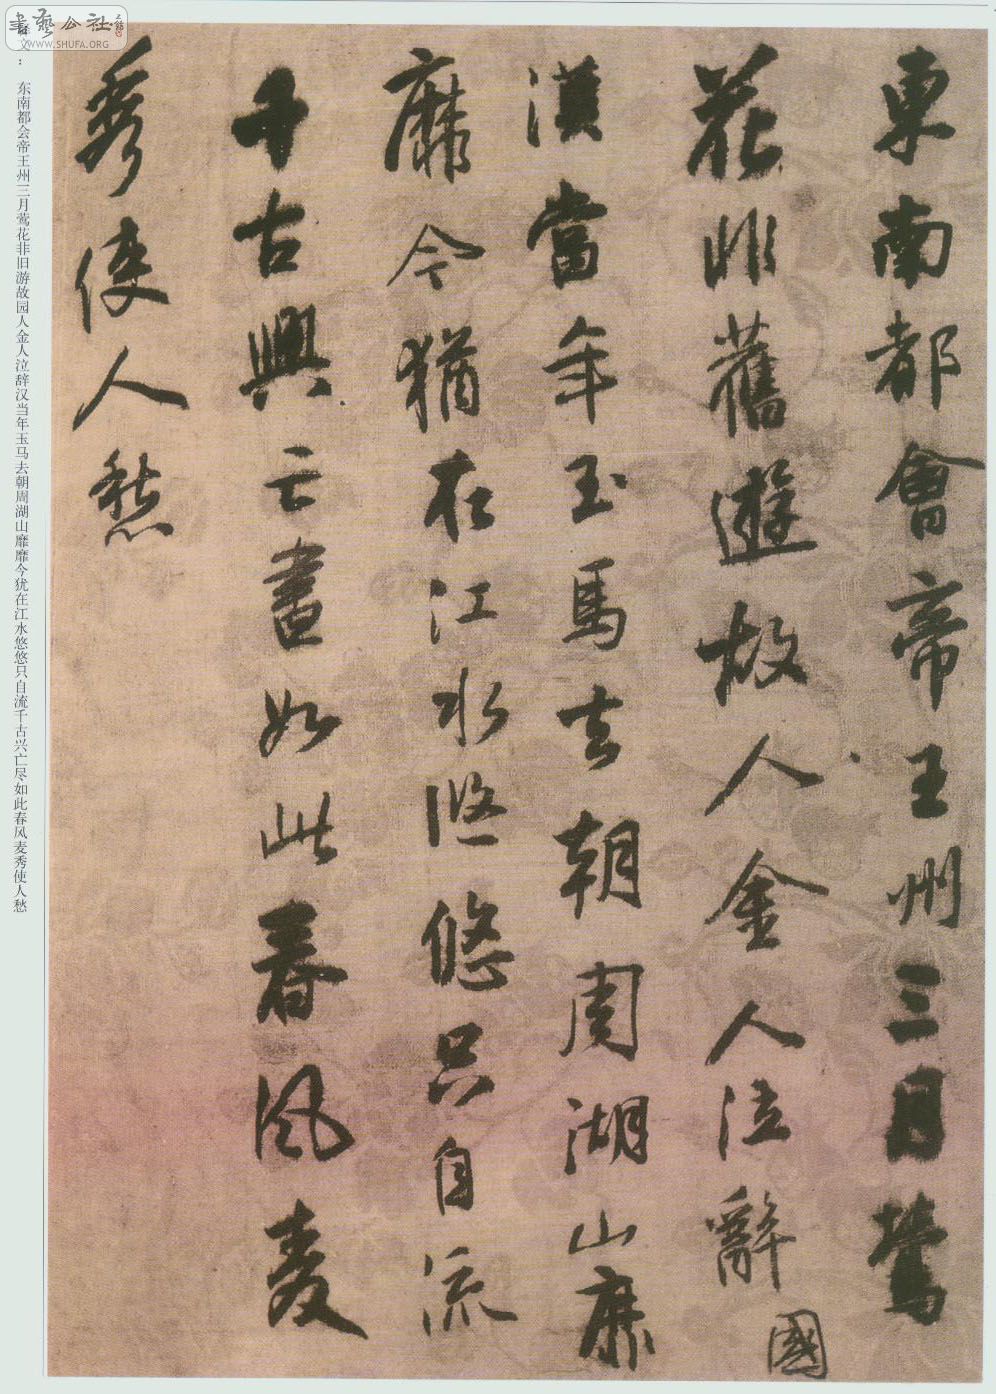 東南都會帝王州三月鶯
花非舊遊故人金人泣辭
國
漢當年玉馬去朝周湖山靡
靡今猶在江水悠悠只自流
千古興亡盡如此春風麥
秀使人愁
释文：东南都会帝王州三月莺花非旧游故园人金人泣辞汉当年玉马去朝周湖山靡靡今犹在江水悠悠只自流千古兴亡尽如此春风麦秀使人愁
書藝公社
WWW.SHUFA.ORG